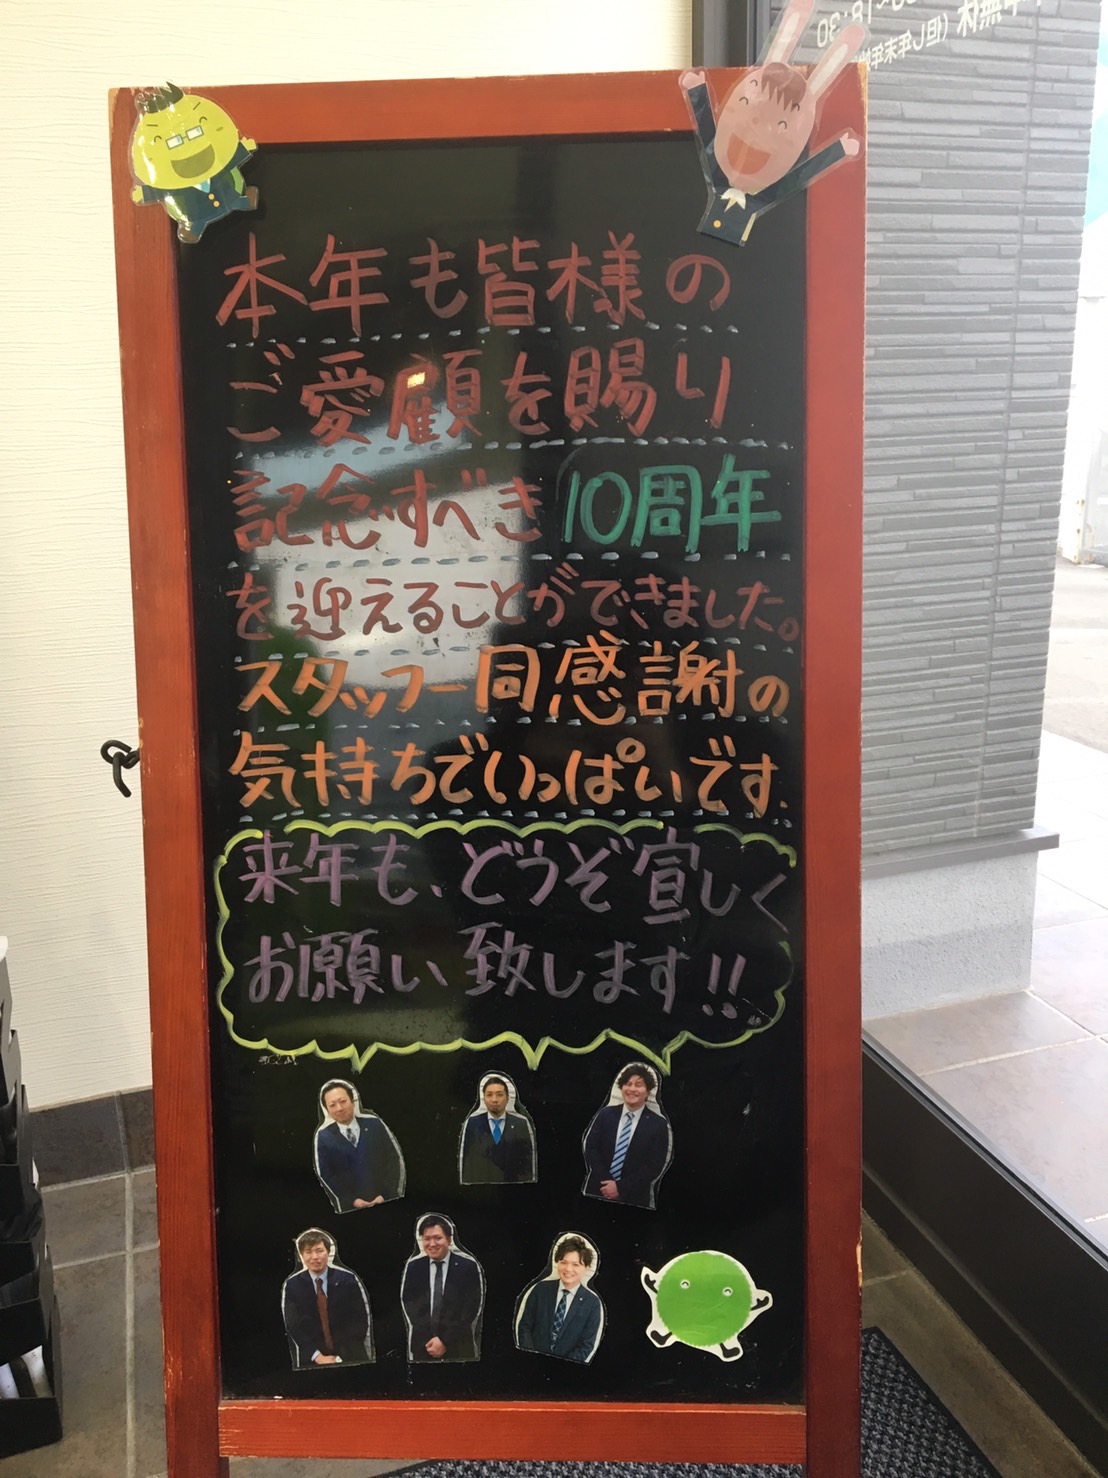 本年も皆様の
ご愛顧を賜り
記念すべき10周年
を迎えることができました。
スタッフ一同感謝の
気持ちでいっぱいです.
来年も、どうぞ宜しく
お願い致します!!